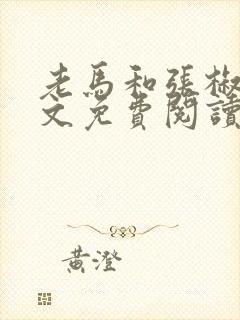 老馬和張椒
文免費閱讀
黃澄